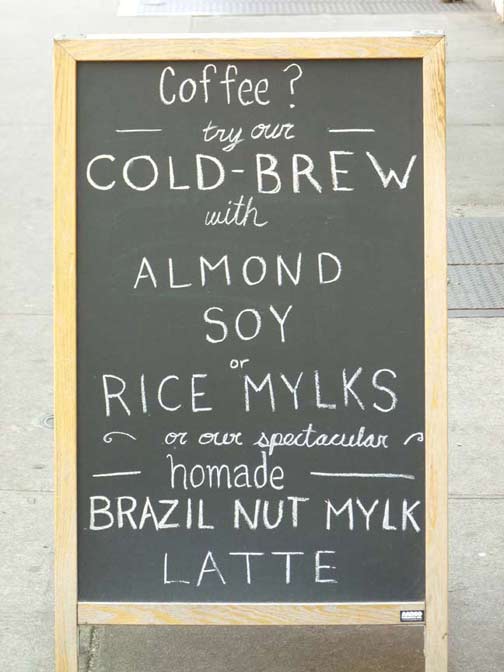 Coffee?
try our
COLD-BREW
with
ALMOND
SOY
or
RICE MYLKS
or our spectacular
homade
BRAZIL NUT MYLK
LATTE